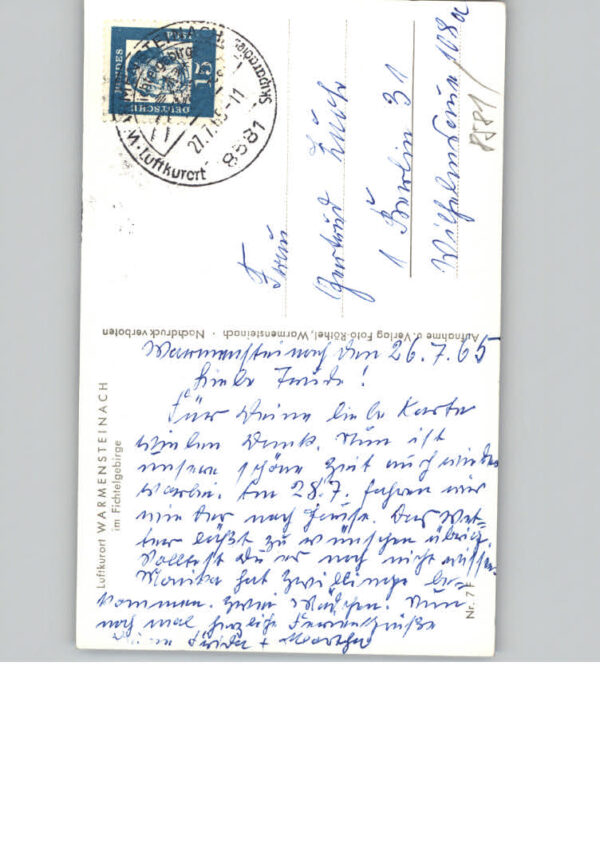 Warmensteinach den 26.7.65
Liebe Trude!
Für Deine liebe Karte
vielen Dank. Nun ist
unsere schöne Zeit auch wieder
vorbei. Am 28.7. fahren wir
wieder nach Hause. Das Wet-
ter läßt zu wünschen übrig.
Solltest du es noch nicht wissen
Monika hat Zwillinge be-
kommen. Zwei Mädchen. Nun
noch mal herzliche Feriengrüße
+ Martha
Luftkurort WARMENSTEINACH
im Fichtelgebirge
Nr. 7 F
Aufnahme u. Verlag Foto Röthel, Warmensteinach · Nachdruck verboten
Frau
Gertrud
1 Berlin 31
Wilhelmsaue 108a
8581/
DEUTSCHE
BUNDES
15
27.7.65-11
8581
Luftkurort
Skiparadies